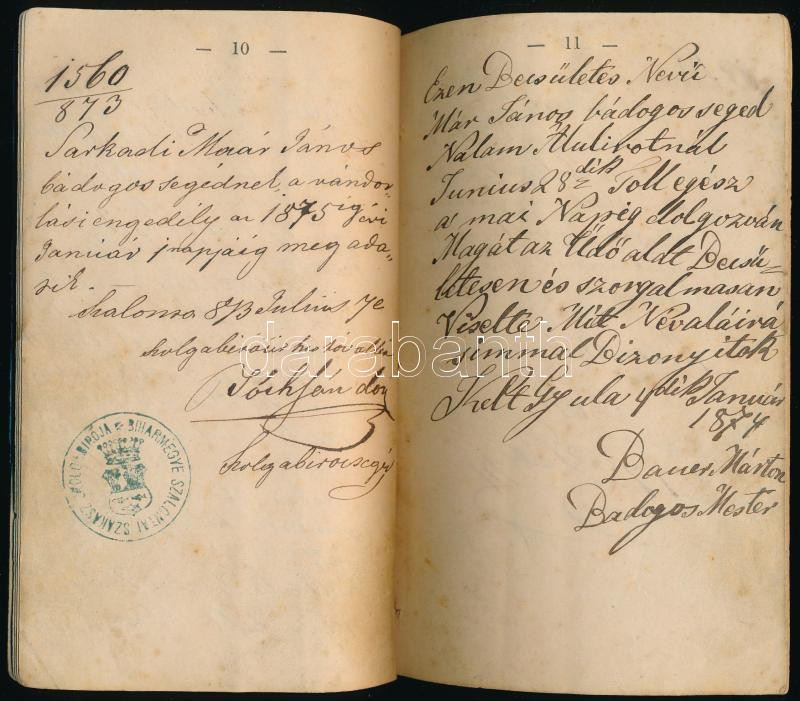 — 10 —
1560
873
Sarkadi Maár János
bádogos segédnek, a vándor-
lási engedély az 1875ig évi
Január 1 napjáig meg ada-
tik.
Szalonta 873 Julius 7e
Szolgabirói
Tóth Sándor
Szolgabirósegéd
BIHARMEGYE SZALONTAI SZAKASZ SZOLGABIRÓJA
— 11 —
Ezen Becsületes Nevü
Már János bádogos seged
Nalam Álulirotnál
Junius 28dik Toll egész
a mai Napig dolgozván
Magát az Üdő alat Becsü-
letesen és szorgalmasan
Viselte Mit Névaláirá
simmal Bizonyitok
Kelt Gyula 4dik Január
1874
Bauer Márton
Badogos Mester
darabanth.com